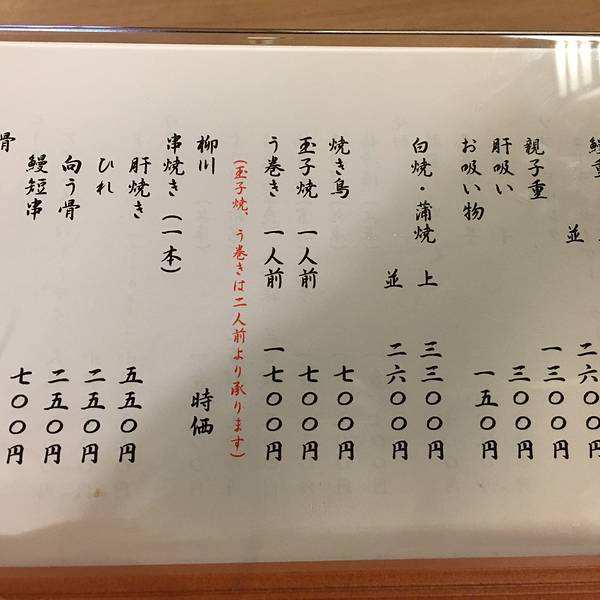 鰻重
並 二六〇〇円
親子重 一三〇〇円
肝吸い 三〇〇円
お吸い物 一五〇円
白焼・蒲焼 上 三三〇〇円
並 二六〇〇円
焼き鳥 七〇〇円
玉子焼 一人前 七〇〇円
う巻き 一人前 一七〇〇円
(玉子焼、う巻きは二人前より承ります)
柳川 時価
串焼き(一本)
肝焼き 五五〇円
ひれ 二五〇円
向う骨 二五〇円
鰻短串 七〇〇円
骨